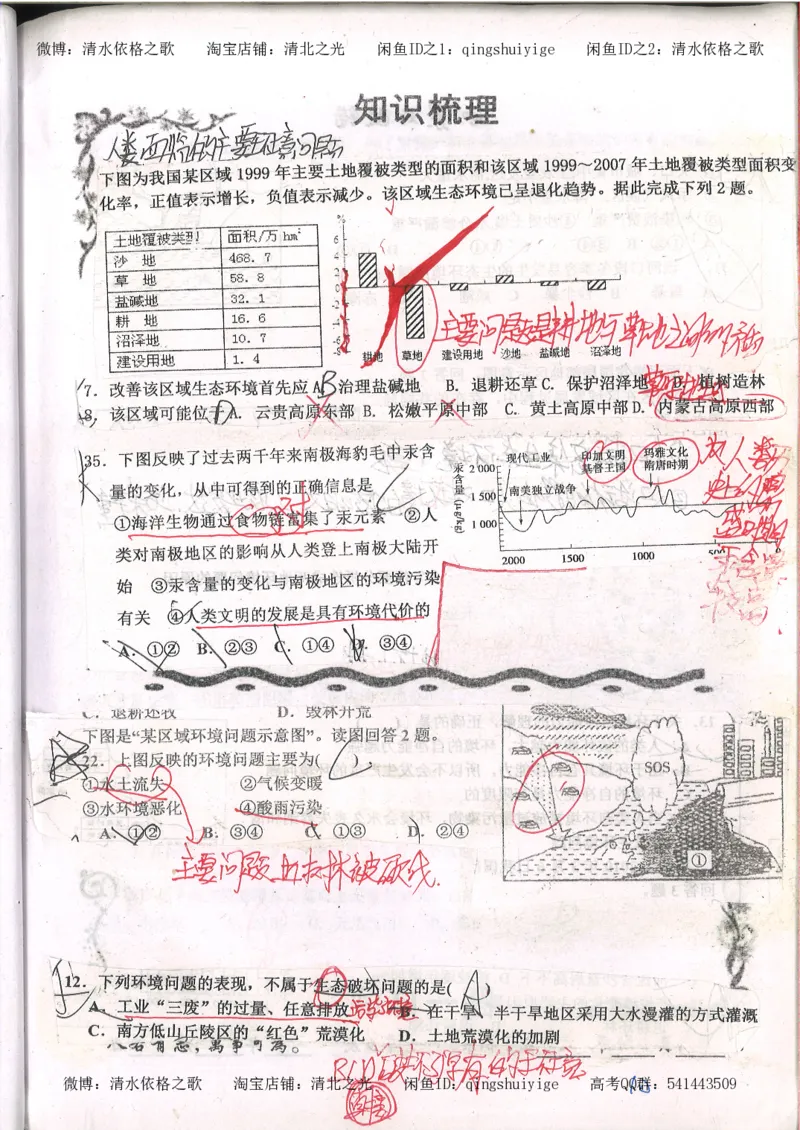 微博：清水依格之歌 淘宝店铺：清北之光 闲鱼ID之1：qingshuiyige 闲鱼ID之2：清水依格之歌
知识梳理
下图为我国某区域 1999 年主要土地覆被类型的面积和该区域 1999～2007 年土地覆被类型面积变
化率，正值表示增长，负值表示减少。该区域生态环境已呈退化趋势。据此完成下列 2 题。
土地覆被类型 面积/万 hm²
沙 地 468. 7
草 地 58. 8
盐碱地 32. 1
耕 地 16. 6
沼泽地 10. 7
建设用地 1. 4
%
6
4
2
0
耕地 草地 建设用地 沙地 盐碱地 沼泽地
主要问题是耕地与草地之间的
7. 改善该区域生态环境首先应 A. 治理盐碱地 B. 退耕还草 C. 保护沼泽地 D. 植树造林
8. 该区域可能位于 A. 云贵高原东部 B. 松嫩平原中部 C. 黄土高原中部 D. 内蒙古高原西部
35. 下图反映了过去两千年来南极海豹毛中汞含
量的变化，从中可得到的正确信息是
①海洋生物通过食物链富集了汞元素 ②人
类对南极地区的影响从人类登上南极大陆开
始 ③汞含量的变化与南极地区的环境污染
有关 ④人类文明的发展是具有环境代价的
A. ①② B. ②③ C. ①④ D. ③④
汞含量(μg/kg)
2 000
1 500
1 000
现代工业
南美独立战争
印加文明
基督王国
玛雅文化
隋唐时期
2000 1500 1000 500 0
C. 退耕还牧 D. 毁林开荒
下图是“某区域环境问题示意图”。读图回答 2 题。
22. 上图反映的环境问题主要为( )
①水土流失 ②气候变暖
③水环境恶化 ④酸雨污染
A. ①② B. ③④ C. ①③ D. ②④
SOS
①
主要问题 森林被砍伐.
12. 下列环境问题的表现，不属于生态破坏问题的是( A )
A. 工业“三废”的过量、任意排放 B. 在干旱、半干旱地区采用大水漫灌的方式灌溉
C. 南方低山丘陵区的“红色”荒漠化 D. 土地荒漠化的加剧
微博：清水依格之歌 淘宝店铺：清北之光 闲鱼ID：qingshuiyige 高考QQ群：541443509